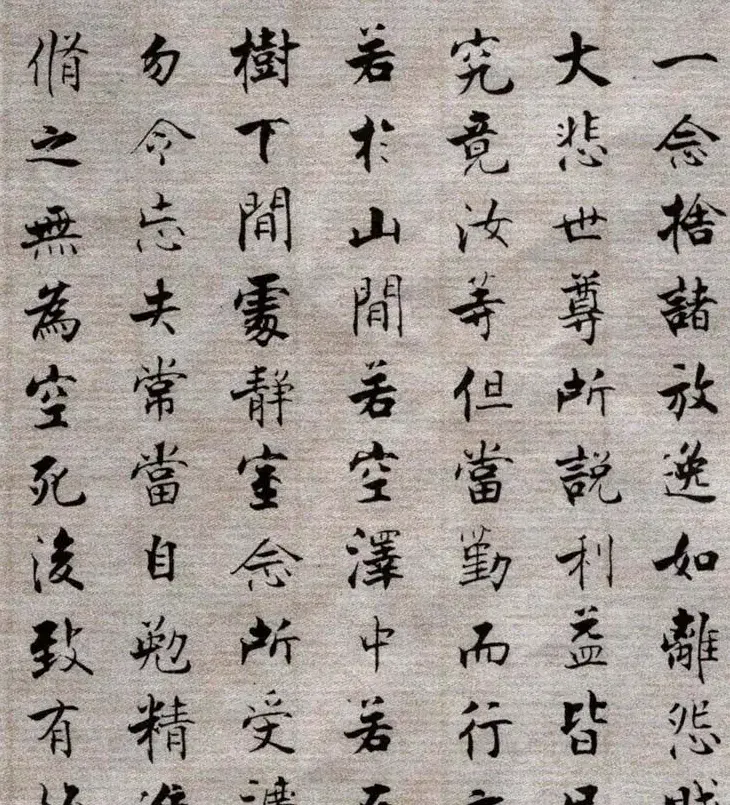 一念捨諸放逸如離怨賊
大悲世尊所說利益皆是
究竟汝等但當勤而行之
若於山間若空澤中若在
樹下閒處靜室念所受法
勿令忘失常當自勉精進
脩之無為空死後致有悔